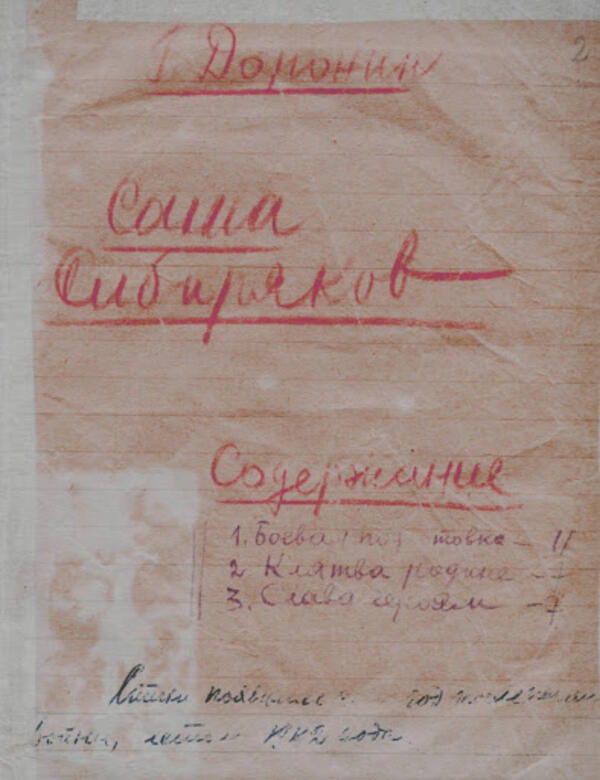 2
Г. Доронин
Саша
Сибиряков
Содержание
1. Боева товка - 11
2 Клятва родине - 7
3. Слава героям - 7
Стихи появились год
войны, летом 1942 года.